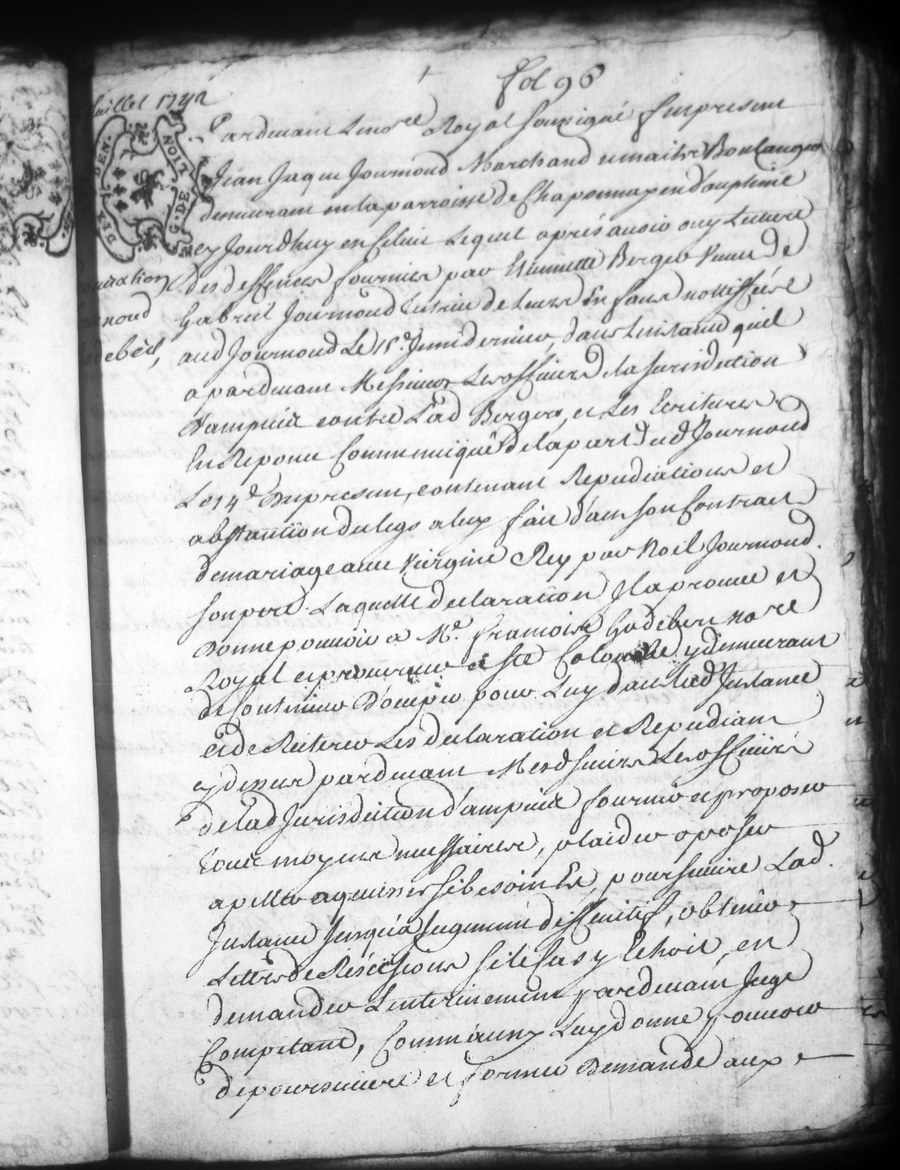 fol 96
Juillet 1742
Pardevant le no.re Royal soussigné fut present
Jean Jaque Journoud Marchand et maitre Boulanger
demeurant en la parroisse de Chaponnay en dauphiné
cejourdhuy en lequel après avoir ouy lecture
des deffences fournies par Ennette Berger veuve de
Gabriel Journoud tutrice de leurs Enfans nottiffiée
aud Journoud le 15e Juin dernier, dans linstance quil
a pardevant Messieurs les officiers de la Jurisdiction
dampuis contre lad Berger, et les Ecritures
En Reponce Communiquée de la part dud Journoud
Le 14e du present, contenant Repudiations et
abstantion du legs a luy fait dans son Contract
de mariage avec Virgine Rey par Noel Journoud
son pere. Laquelle declaration Il aprouve et
Donne pouvoir a Me. François Godebert no.re
Royal et procureur de Ste Colombe y demeurant
de Continuer D'occuper pour Luy dans lad Instance
et de Reiterer les declaration et Repudiant
cy dessus pardevant Mesd sieurs Les officiers
de lad Jurisdiction d'ampuis fournir et proposer
tous moyens necessaires, plaider oposer
apeller aquiescer si besoin Est, poursuivre Lad.
Instance jusqu'a Jugement deffinitif, obtenir
Lettres de Rescissions si le Cas y Echoit, en
demander Lenterinement pardevant Juge
Competant, Comm'aussy Luy donne pouvoir
de poursuivre et former Demande aux
DIX DEN.
G. DE
journoud
godebert,